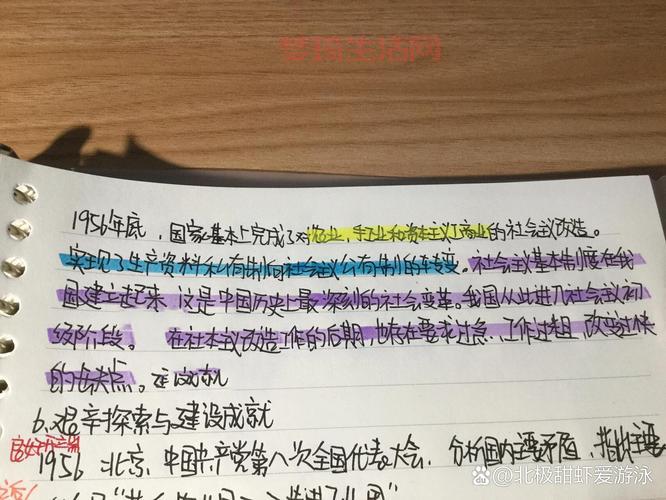 梦琦生活网
1956年底，国家基本上完成了对农业、手工业和资本主义工商业的社会主义改造。
实现了生产资料私有制向社会主义公有制的转变。社会主义基本制度在我
国建立起来，这是中国历史上最深刻的社会变革。我国从此进入社会主义初
级阶段。在社本主义改造工作的后期，也存在要求过急、工作过粗、改变过快
的缺点。
6.艰辛探索与建设成就
1956 北京，中国共产党第八次全国代表大会，分析国内主要矛盾，指出主要
北极甜虾爱游泳